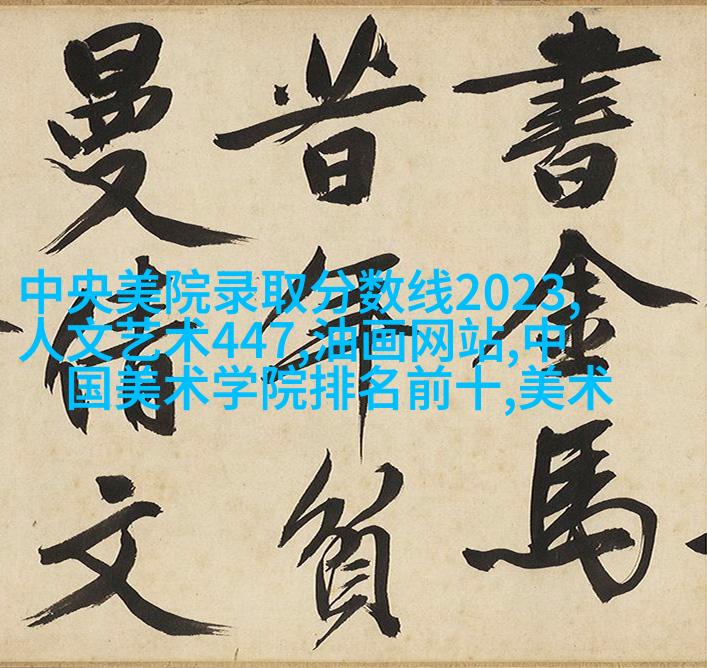 書金馬
昔年負
曼倩文
中央美院录取分数线2023,
人文艺术447,油画网站,中
国美术学院排名前十,美术